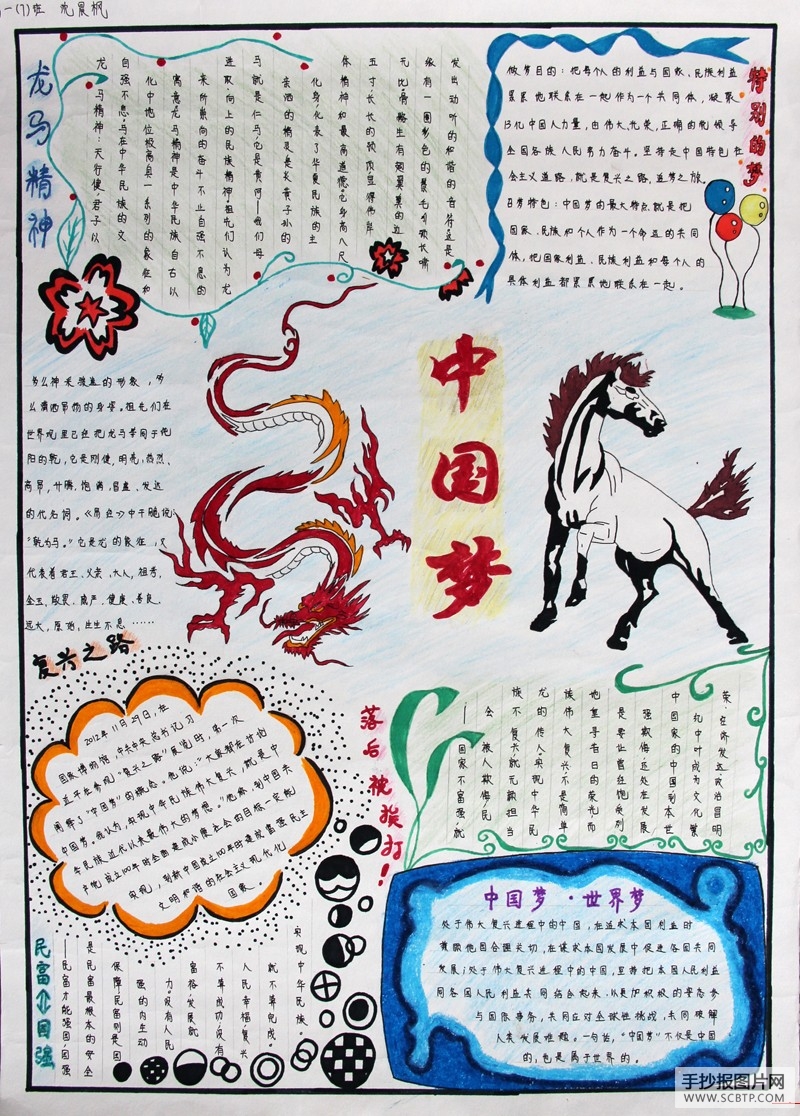 一(7)班
龙马精神
龙马精神:天行健,君子以
自强不息。马在中华民族的文
化中地位极高,具一系列的象征和
寓意。龙马精神是中华民族自古以
来所崇尚的奋斗不止自强不息的
进取、向上的民族精神。祖先们认为龙
马就是仁马,它是黄河
亲洒的精灵,是炎黄子孙的
化身,代表了华夏民族的主
体精神和最高道德。它身高八尺
五寸,长长的颈项,显得伟岸
无比。骨骼生有翅翼,翼的边
缘有一圈彩色的鬃毛,引颈长嘶,
发出动听的和谐的音符。这是
做梦目的:把每个人的利益与国家、民族利益
紧紧地联系在一起作为一个共同体,凝聚
13亿中国人力量,由伟大、光荣、正确的党领导
全国各族人民努力奋斗。坚持走中国特色社
会主义道路,就是复兴之路,追梦之旅。
日梦特色:中国梦的最大特点,就是把
国家、民族和个人作为一个命运的共同
体,把国家利益、民族利益和每个人的
具体利益都紧紧地联系在一起。
特别的梦
多么神采飞扬的形象,多
么潇洒昂扬的身姿。祖先们在
世界观里已经把龙马等同于纯
阳的乾,它是刚健、明亮、热烈、
高昂、升腾、饱满、昌盛、发达
的代名词。《易经》中干脆说:
“乾为马。”它是龙的象征,又
代表着君王、父亲、大人、祖考、
金玉、敬畏、威严、健康、善良、
远大、原始、生生不息……
中国梦
复兴之路
2012年11月29日,在
国家博物馆,中共中央总书记习
近平在参观“复兴之路”展览时,第一次
阐释了“中国梦”的概念。他说:“大家都在讨论
中国梦。我认为,实现中华民族伟大复兴,就是中
华民族近代以来最伟大的梦想。”他称,到中国共
产党成立100年时全面建成小康社会的目标一定能
实现,到新中国成立100年时建成富强民主
文明和谐的社会主义现代化
国家
落后被挨打!
——国家不富强就
会被人欺侮,民
族不复兴就无颜担当
龙的传人。实现中华民
族伟大复兴,不是简单
地重寻昔日的荣光,而
是要让曾经饱受列
强欺侮、迄处在发展
中国家的中国,到本世
纪中叶成为文化繁
荣、经济发达、政治昌明
民富⇕国强
——民富才能强国,国强
是民富最根本的安全
保障,民富则是国
强的内生动
力。没有人民
富裕,发展就
不算成功;没有
人民幸福,复兴
就不算完成。
实现中华民族
中国梦·世界梦
处于伟大复兴进程中的中国,在追求本国利益时
兼顾他国合理关切,在谋求本国发展中促进各国共同
发展;处于伟大复兴进程中的中国,坚持把本国人民利益
同各国人民利益共同结合起来,以更加积极的姿态参
与国际事务,共同应对全球性挑战,共同破解
人类发展难题。一句话,“中国梦”不仅是中国
的,也是属于世界的。
手抄报图片网
WWW.SCBTP.COM